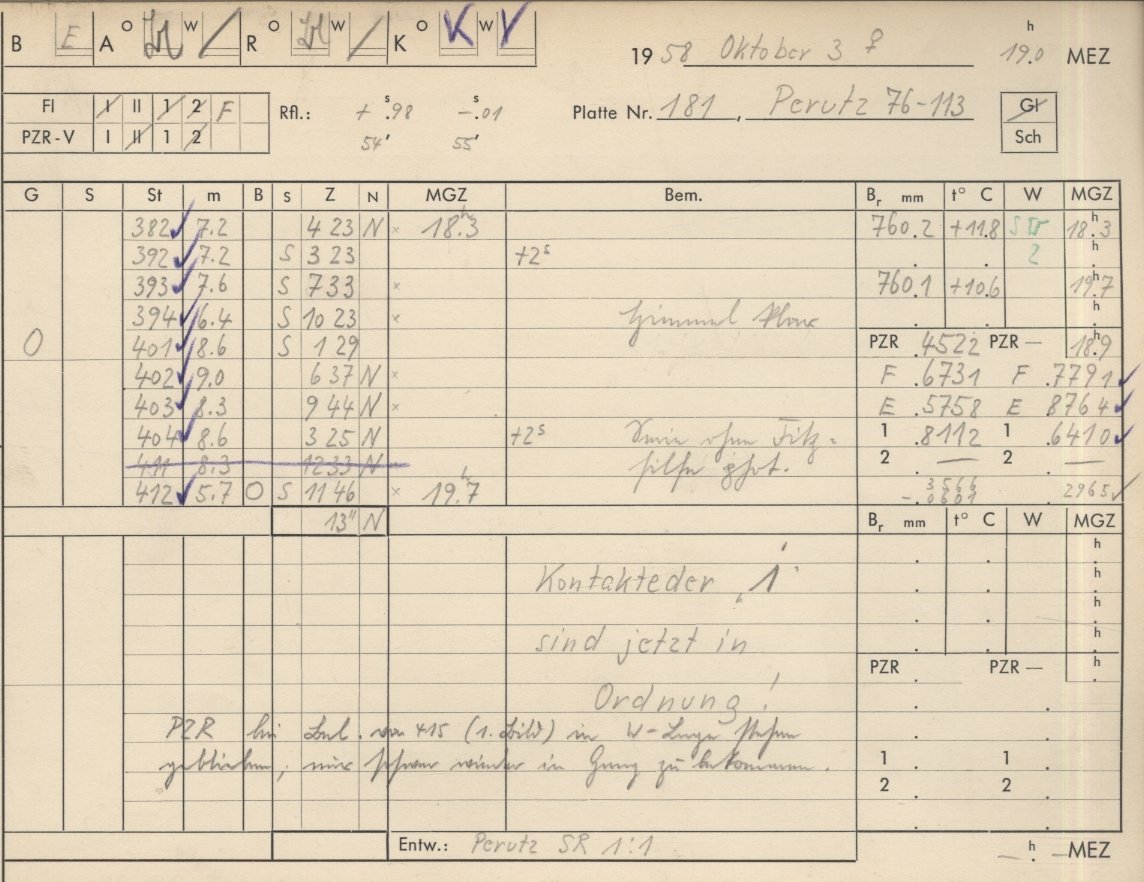 B E A O W R O W K O K W Y
19 58 Oktober 3 ♀ 19.0 h MEZ
FI I II 1 2 F Rfl.: + s.98 -s.01 Platte Nr. 181, Perutz 76-113 Gl
PZR-V I II 1 2 54' 55' Sch
G S St m B S Z N MGZ Bem. Br mm t° C W MGZ
382 7.2 4 23 N × 18.3 h 760.2 +11.8 18.3 h
392 7.2 S 3 23 +2s 2 h
393 7.6 S 7 33 × 760.1 +10.6 19.7 h
394 6.4 S 10 23 × Himmel klar h
0 401 8.6 S 1 29 PZR .4522 PZR — 18.9 h
402 9.0 6 37 N × F .6731 F .7791
403 8.3 9 44 N × E .5758 E .8764
404 8.6 3 25 N +2s ohne 1 .8112 1 .6410
411 8.3 12 33 N 2 — 2 —
412 5.7 O S 11 46 × 19.7 h 3566 -.0601 2965
13" N Br mm t° C W MGZ
h
Kontakteder „1" h
h
sind jetzt in h
PZR PZR — h
Ordnung!
PZR bei von 415 (1. Bild) in W-Lage stehen
geblieben, nur schwer wieder in Gang zu bekommen. 1 1
2 2
Entw.: Perutz SR 1:1
— h — MEZ